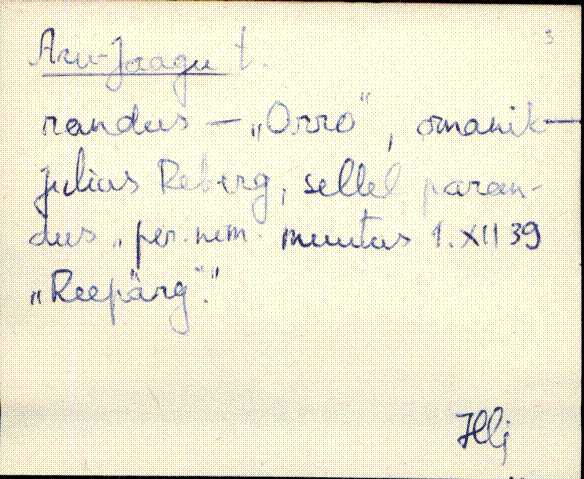 3
Aru-Jaagu t.
randus – „Orro“, omanik –
Julius Reberg, sellel paran-
dus „per. nim. muutus 1. XII 39
„Reepärg“.“
Hlj